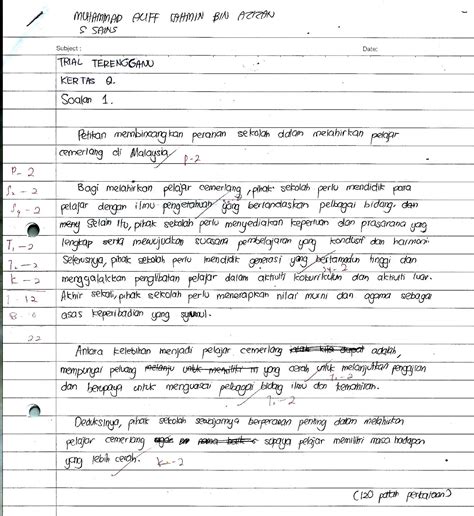 MUHAMMAD ALIFF BIN AZIZAN
5 SAINS
Subject: Date:
TRIAL TERENGGANU
KERTAS 2.
Soalan 1.
Petikan membincangkan peranan sekolah dalam melahirkan pelajar
cemerlang di Malaysia. P-2
P- 2
Bagi melahirkan pelajar cemerlang, pihak sekolah perlu mendidik para
pelajar dengan ilmu pengetahuan yang berlandaskan pelbagai bidang. dan
meny Selain itu, pihak sekolah perlu menyediakan keperluan dan prasarana yang
lengkap serta mewujudkan suasana pembelajaran yang kondusif dan harmoni.
Seterusnya, pihak sekolah perlu mendidik generasi yang bertamadun tinggi dan
menggalakkan penglibatan pelajar dalam aktiviti kokurikulum dan aktiviti luar.
K - 2
Akhir sekali, pihak sekolah perlu menerapkan nilai murni dan agama sebagai
I - 12
asas keperibadian yang syumul.
22
Antara kelebihan menjadi pelajar cemerlang adalah,
mempunyai peluang yang cerah untuk melanjutkan pengajian
dan berupaya untuk menguasai pelbagai bidang ilmu dan kemahiran.
Deduksinya, pihak sekolah sewajarnya berperanan penting dalam melahirkan
pelajar cemerlang supaya pelajar memiliki masa hadapan
yang lebih cerah. K-2
(120 patah perkataan)